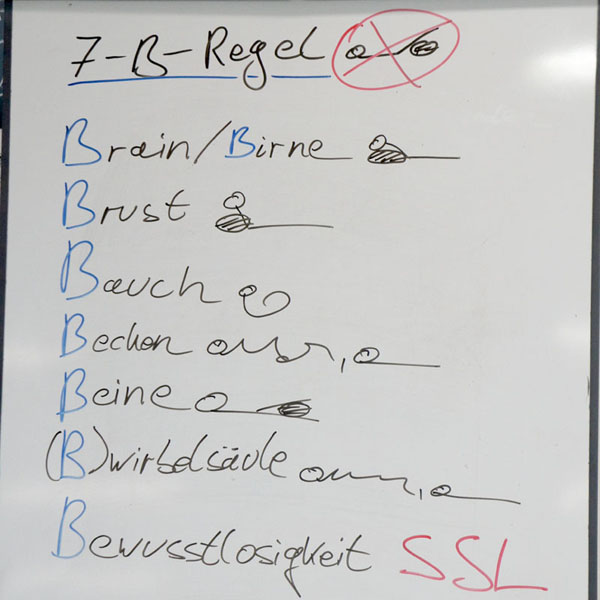 7-B-Regel
Brain/Birne
Brust
Bauch
Becken
Beine
(B)wirbelsäule
Bewusstlosigkeit SSL